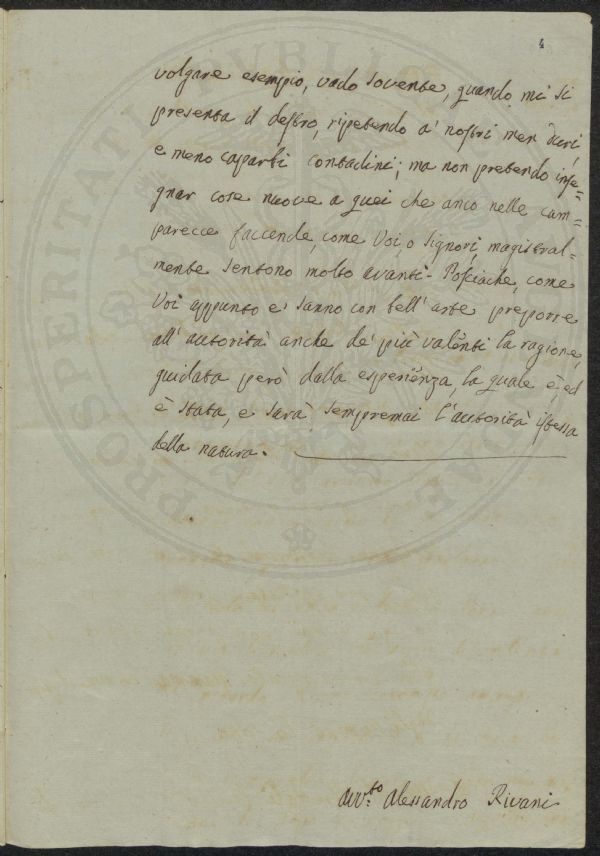 4
volgare esempio, vado sovente, quando mi si
presenta il destro, ripetendo a' nostri men duri,
e meno caparbi contadini; ma non pretendo inse=
gnar cose nuove a quei che anco nelle cam=
parecce faccende, come Voi, o Signori, magistral=
mente sentono molto avanti. Posciache, come
Voi appunto e' sanno con bell' arte preporre
all' autorità anche de' più valenti la ragione,
guidata però dalla esperienza, la quale è, ed
è stata, e sarà sempremai l'autorità istessa
della natura.
avv.to Alessandro Rivani
PROSPERITATI PUBLICAE